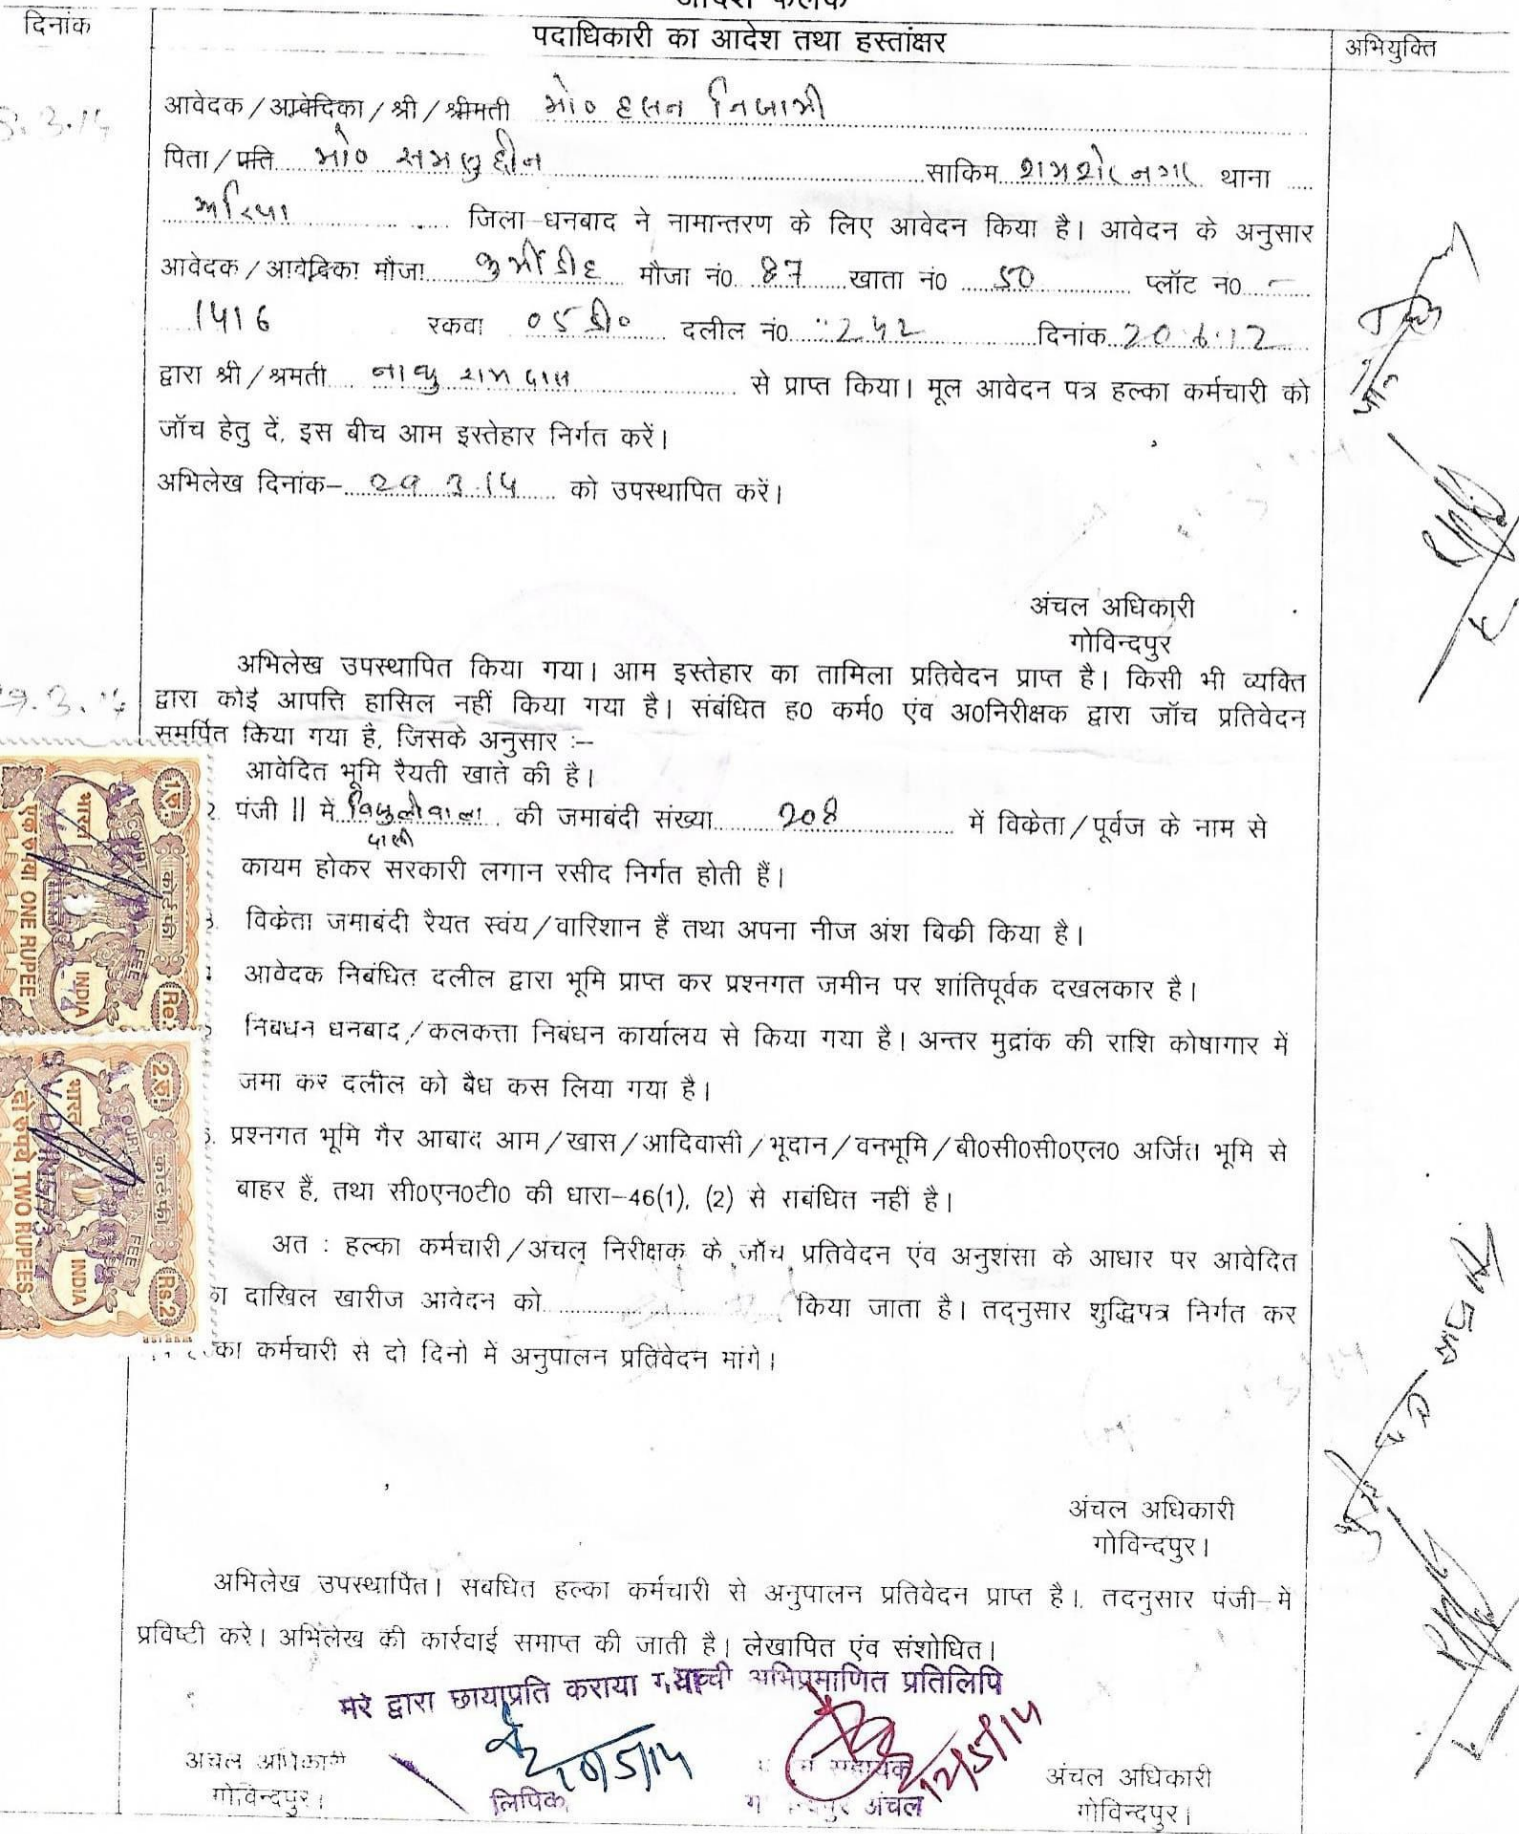 आदेश फलक
दिनांक
पदाधिकारी का आदेश तथा हस्तांक्षर
अभियुक्ति
आवेदक/आवेदिका/श्री/श्रीमती मो० हसन निजामी
पिता/पति मो० समसुद्दीन साकिम शमशेर नगर थाना
झरिया जिला-धनबाद ने नामान्तरण के लिए आवेदन किया है। आवेदन के अनुसार
आवेदक/आवेदिका मौजा कुर्मीडीह मौजा नं० 87 खाता नं० 50 प्लॉट न० –
1416 रकवा ०5 डी० दलील नं० 242 दिनांक 20.6.12
द्वारा श्री/श्रमती राम दास से प्राप्त किया। मूल आवेदन पत्र हल्का कर्मचारी को
जॉच हेतु दें, इस बीच आम इस्तेहार निर्गत करें।
अभिलेख दिनांक– 29 3.14 को उपस्थापित करें।
अंचल अधिकारी
गोविन्दपुर
अभिलेख उपस्थापित किया गया। आम इस्तेहार का तामिला प्रतिवेदन प्राप्त है। किसी भी व्यक्ति
9.3.14 द्वारा कोई आपत्ति हासिल नहीं किया गया है। संबंधित ह० कर्म० एंव अ०निरीक्षक द्वारा जॉच प्रतिवेदन
समर्पित किया गया है, जिसके अनुसार :–
आवेदित भूमि रैयती खाते की है।
2. पंजी II में दासी की जमाबंदी संख्या 208 में विकेता/पूर्वज के नाम से
कायम होकर सरकारी लगान रसीद निर्गत होती हैं।
विकेता जमाबंदी रैयत स्वंय/वारिशान हैं तथा अपना नीज अंश बिकी किया है।
आवेदक निबंधित दलील द्वारा भूमि प्राप्त कर प्रश्नगत जमीन पर शांतिपूर्वक दखलकार है।
निबधन धनबाद/कलकत्ता निबंधन कार्यालय से किया गया है। अन्तर मुद्रांक की राशि कोषागार में
जमा कर दलील को बैध कस लिया गया है।
प्रश्नगत भूमि गैर आबाद आम/खास/आदिवासी/भूदान/वनभूमि/बी०सी०सी०एल० अर्जित भूमि से
बाहर हैं, तथा सी०एन०टी० की धारा–46(1), (2) से सबंधित नहीं है।
अत : हल्का कर्मचारी/अंचल निरीक्षक के जॉच प्रतिवेदन एंव अनुशंसा के आधार पर आवेदित
दाखिल खारीज आवेदन को किया जाता है। तद्नुसार शुद्धिपत्र निर्गत कर
का कर्मचारी से दो दिनो में अनुपालन प्रतिवेदन मांगे।
1रु. भारत INDIA Re.1
कोर्ट फी COURT FEE
एक रुपया ONE RUPEE
2रु. भारत INDIA Rs.2
कोर्ट फी COURT FEE
दो रुपये TWO RUPEES
अंचल अधिकारी
गोविन्दपुर।
अभिलेख उपस्थापित। सबधित हल्का कर्मचारी से अनुपालन प्रतिवेदन प्राप्त है। तदनुसार पंजी-में
प्रविष्टी करे। अभिलेख की कार्रवाई समाप्त की जाती है। लेखापित एंव संशोधित।
मेरे द्वारा छायाप्रति कराया गया
सच्ची अभिप्रमाणित प्रतिलिपि
20/5/14
12/5/14
अचल अधिकारी
गोविन्दपुर।
लिपिक
सहायक
अंचल
अंचल अधिकारी
गोविन्दपुर।